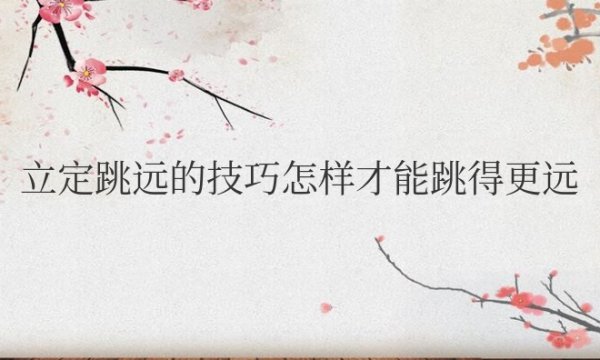 立定跳远的技巧怎样才能跳得更远